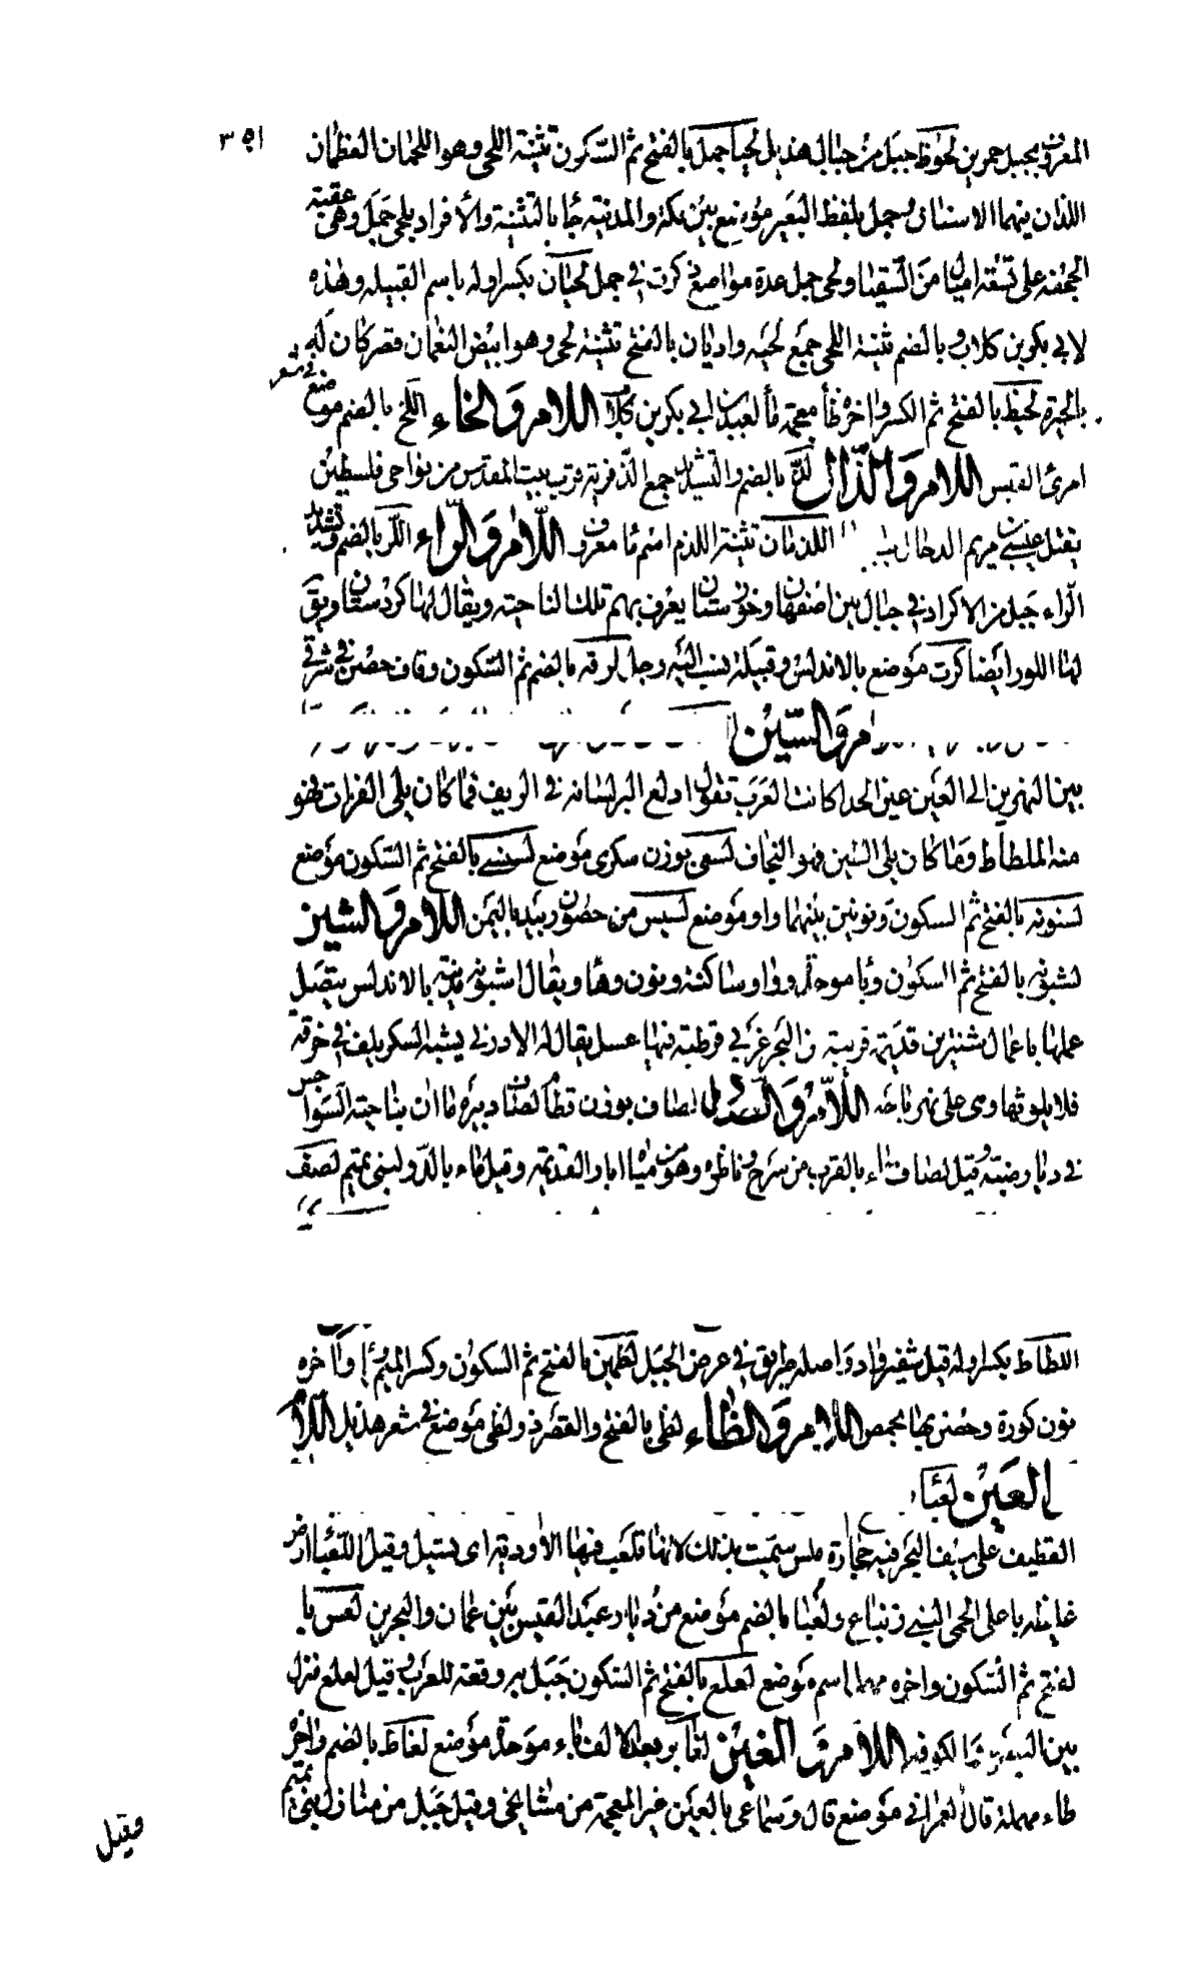 ٣٥١
المعروف بجبل حمرين لحوظ جبل من جبال هذيل لحيا جمل بالفتح ثم السكون تثنية اللحى وهو اللحمان العظمان
اللذان بينهما الاسنان وجمل بلفظ البعير موضع بين مكة والمدينة جا بالتثنية والافراد يلى جمل وهى عقبة
الجحفة على تسعة اميال من السقيا ولحى جمل عدة مواضع ذكرت فى جمل لحيان بكسر اوله باسم القبيله وهذه
لابى بكر بن كلاب وبالضم تثنية اللحى جمع لحيه واديان بالفتح تثنية لحى وهو ابيض النعمان قصر كان له
بالحيرة لحيظ بالفتح ثم الكسر واخره ظا معجمة ما لعبيد بن ابى بكر بن كلاب اللام والخاء اللخ بالضم موضع فى شعر
امرئ القيس اللام والدال لد بالضم والتشديد جمع الد قرية قرب بيت المقدس من نواحى فلسطين
يقتل عيسى بن مريم الدجال اللدمان تثنية اللدم اسم ما معروف اللام والراء اللر بالضم وتشديد
الراء جبل من الاكراد فى جبال بين اصفهان وخوزستان يعرف بهم تلك الناحية ويقال لها كردستان ويق
لها اللور ايضا كرت موضع بالاندلس وقبيلة ينسب اليه رجل لرقه بالضم ثم السكون وقاف حصن فى شرقى
اللام والسين
بين النهرين الى العين عين الحد كانت العرب تقول ادلع البر لسانه فى الريف فما كان يلى الفرات فهو
منه الملطاط وما كان يلى البين فهو النجاف لسعى بوزن سكرى موضع بالفتح ثم السكون موضع
لسنونه بالفتح ثم السكون ونونين بينهما واو موضع لسيس من حصون زبيد باليمن اللام والشين
لشبونه بالفتح ثم السكون وبا موحدة وواو ساكنة ونون وها ويقال اشبونه مدينة بالاندلس يتصل
عملها باعمال شنترين قديمة قريبة من البحر غربى قرطبة فيها عسل يقال له الاذرنى يشبه السكر يلف فى خرقة
فلا يلوثها وهى على نهر باجه اللام والصاد لصاف بوزن قطام كصان دبيره ما ان بناحية الشواجن
فى ديار ضبة وقيل لصاف ماء بالقرب من شرج وناظره وهو من مياه اياد القديمة وقيل ماء بالدو لبنى تميم لصف
اللطاط بكسر اوله قيل شفير واد واصله طريق فى عرض الجبل لطمين بالفتح ثم السكون وكسر الميم ويا واخره
نون كورة وحصن بها بحمص اللام والظاء لظى بالفتح والقصر ذو لظى موضع فى شعر هذيل اللام
والعين لعباء
القطيف على سيف البحر فيه حجارة ملس سميت بذلك لانها تلعب فيها الاودية اى تسيل وقيل اللعباء ارض
غليظه باعلى الحمى لبنى زنباع ولعبا بالضم موضع من ديار عبد القيس بين عمان والبحرين لعس با
لفتح ثم السكون واخره مهمله اسم موضع لعلع بالفتح ثم السكون جبل به وقعة للعرب وقيل لعلع منزل
بين البصرة والكوفه اللام والغين لغابر بعد الالف باء موحدة موضع لغاط بالضم واخره
طاء مهملة قال العمرانى موضع قال وسماعى بالعين غير المعجمة من مشايخى وقيل جبل من منازل بنى تميم
وقيل